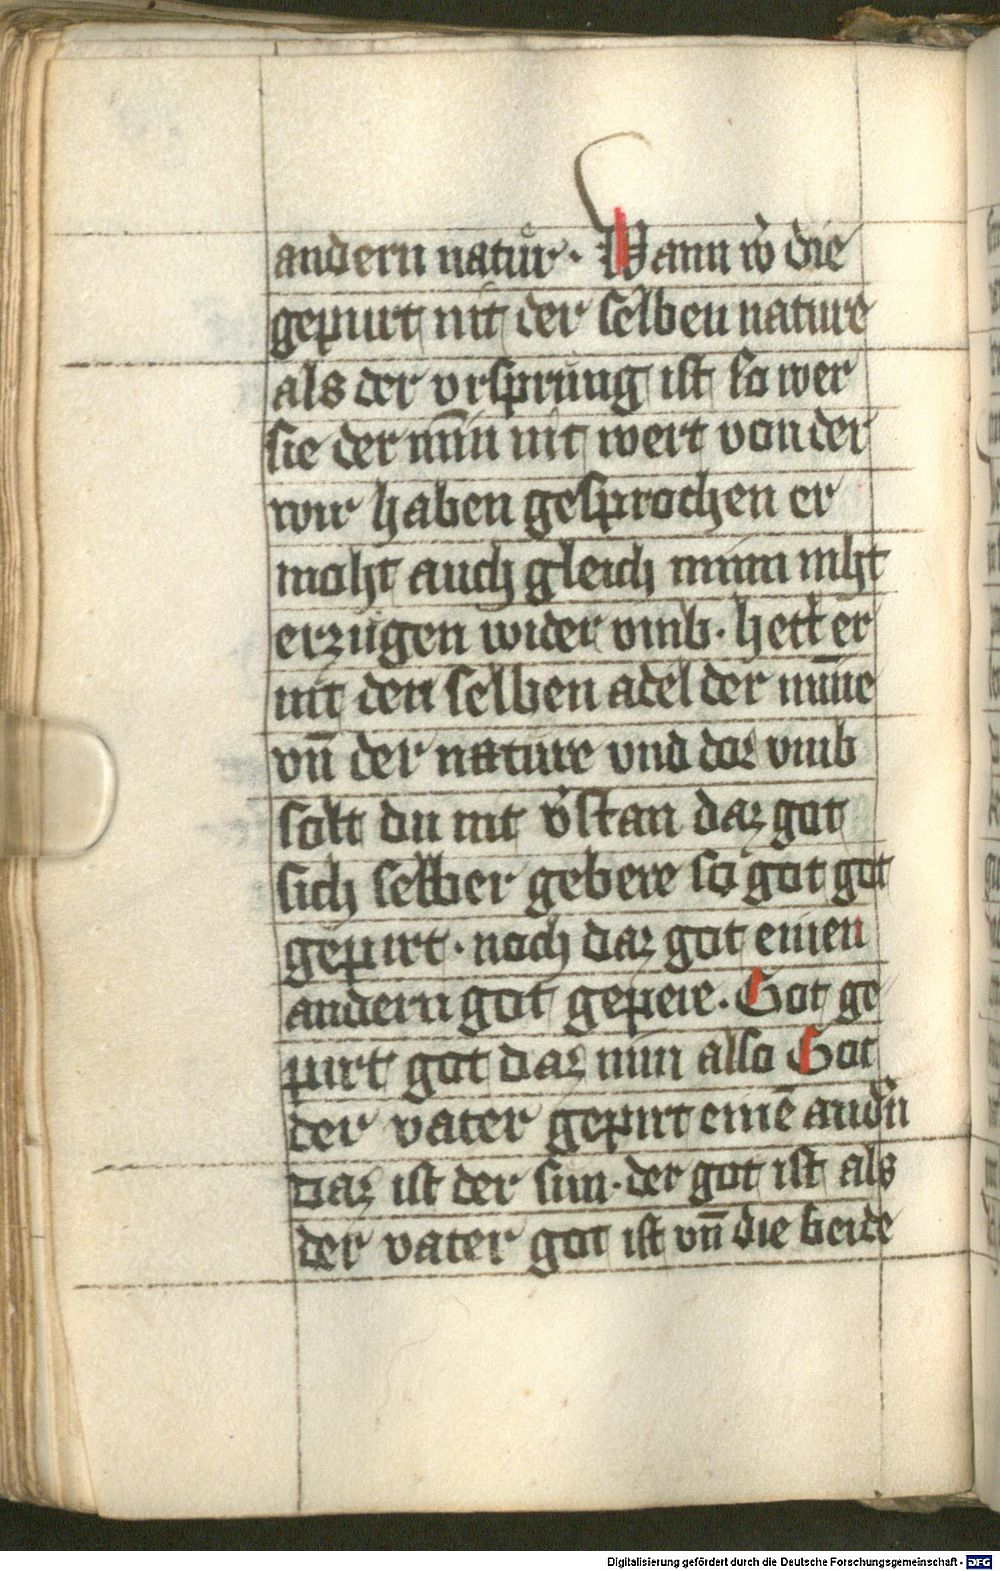 andern natuͤr · Wann wͦ die
gepurt nit der selben nature
als der vrsprung ist so wer
sie der min̄ nit wert von der
wir haben gesprochen er
moht auch gleich minn niht
erzugen wider vmb · hett er
nit den selben adel der min̄e
vn̄ der nature vnd dor vmb
solt du nit v̓stan daz got
sich selber gebere so got got
gepirt · noch daz got einen
andern got gepere . Got ge
purt got daz nim also Got
der vater gepirt einē and̓n
daz ist der sun · der got ist als
der vater got ist vn̄ die beide
Digitalisierung gefördert durch die Deutsche Forschungsgemeinschaft - DFG